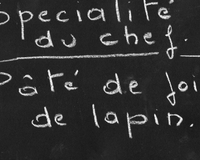 Spécialité
du chef.
Pâté de foi
de lapin.